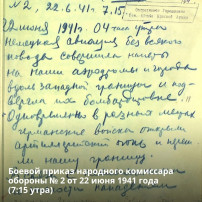 № 2, 22.6.41 г. 7.15
22 июня 1941 г. 04 часа утра
немецкая авиация без всякого
повода совершила налеты
на наши аэродромы и города
вдоль западной границы и под-
вергла их бомбардировке.
Одновременно в разных местах
германские войска открыли
артиллерийский огонь и
нашу границу.
Боевой приказ народного комиссара
обороны № 2 от 22 июня 1941 года
(7:15 утра)